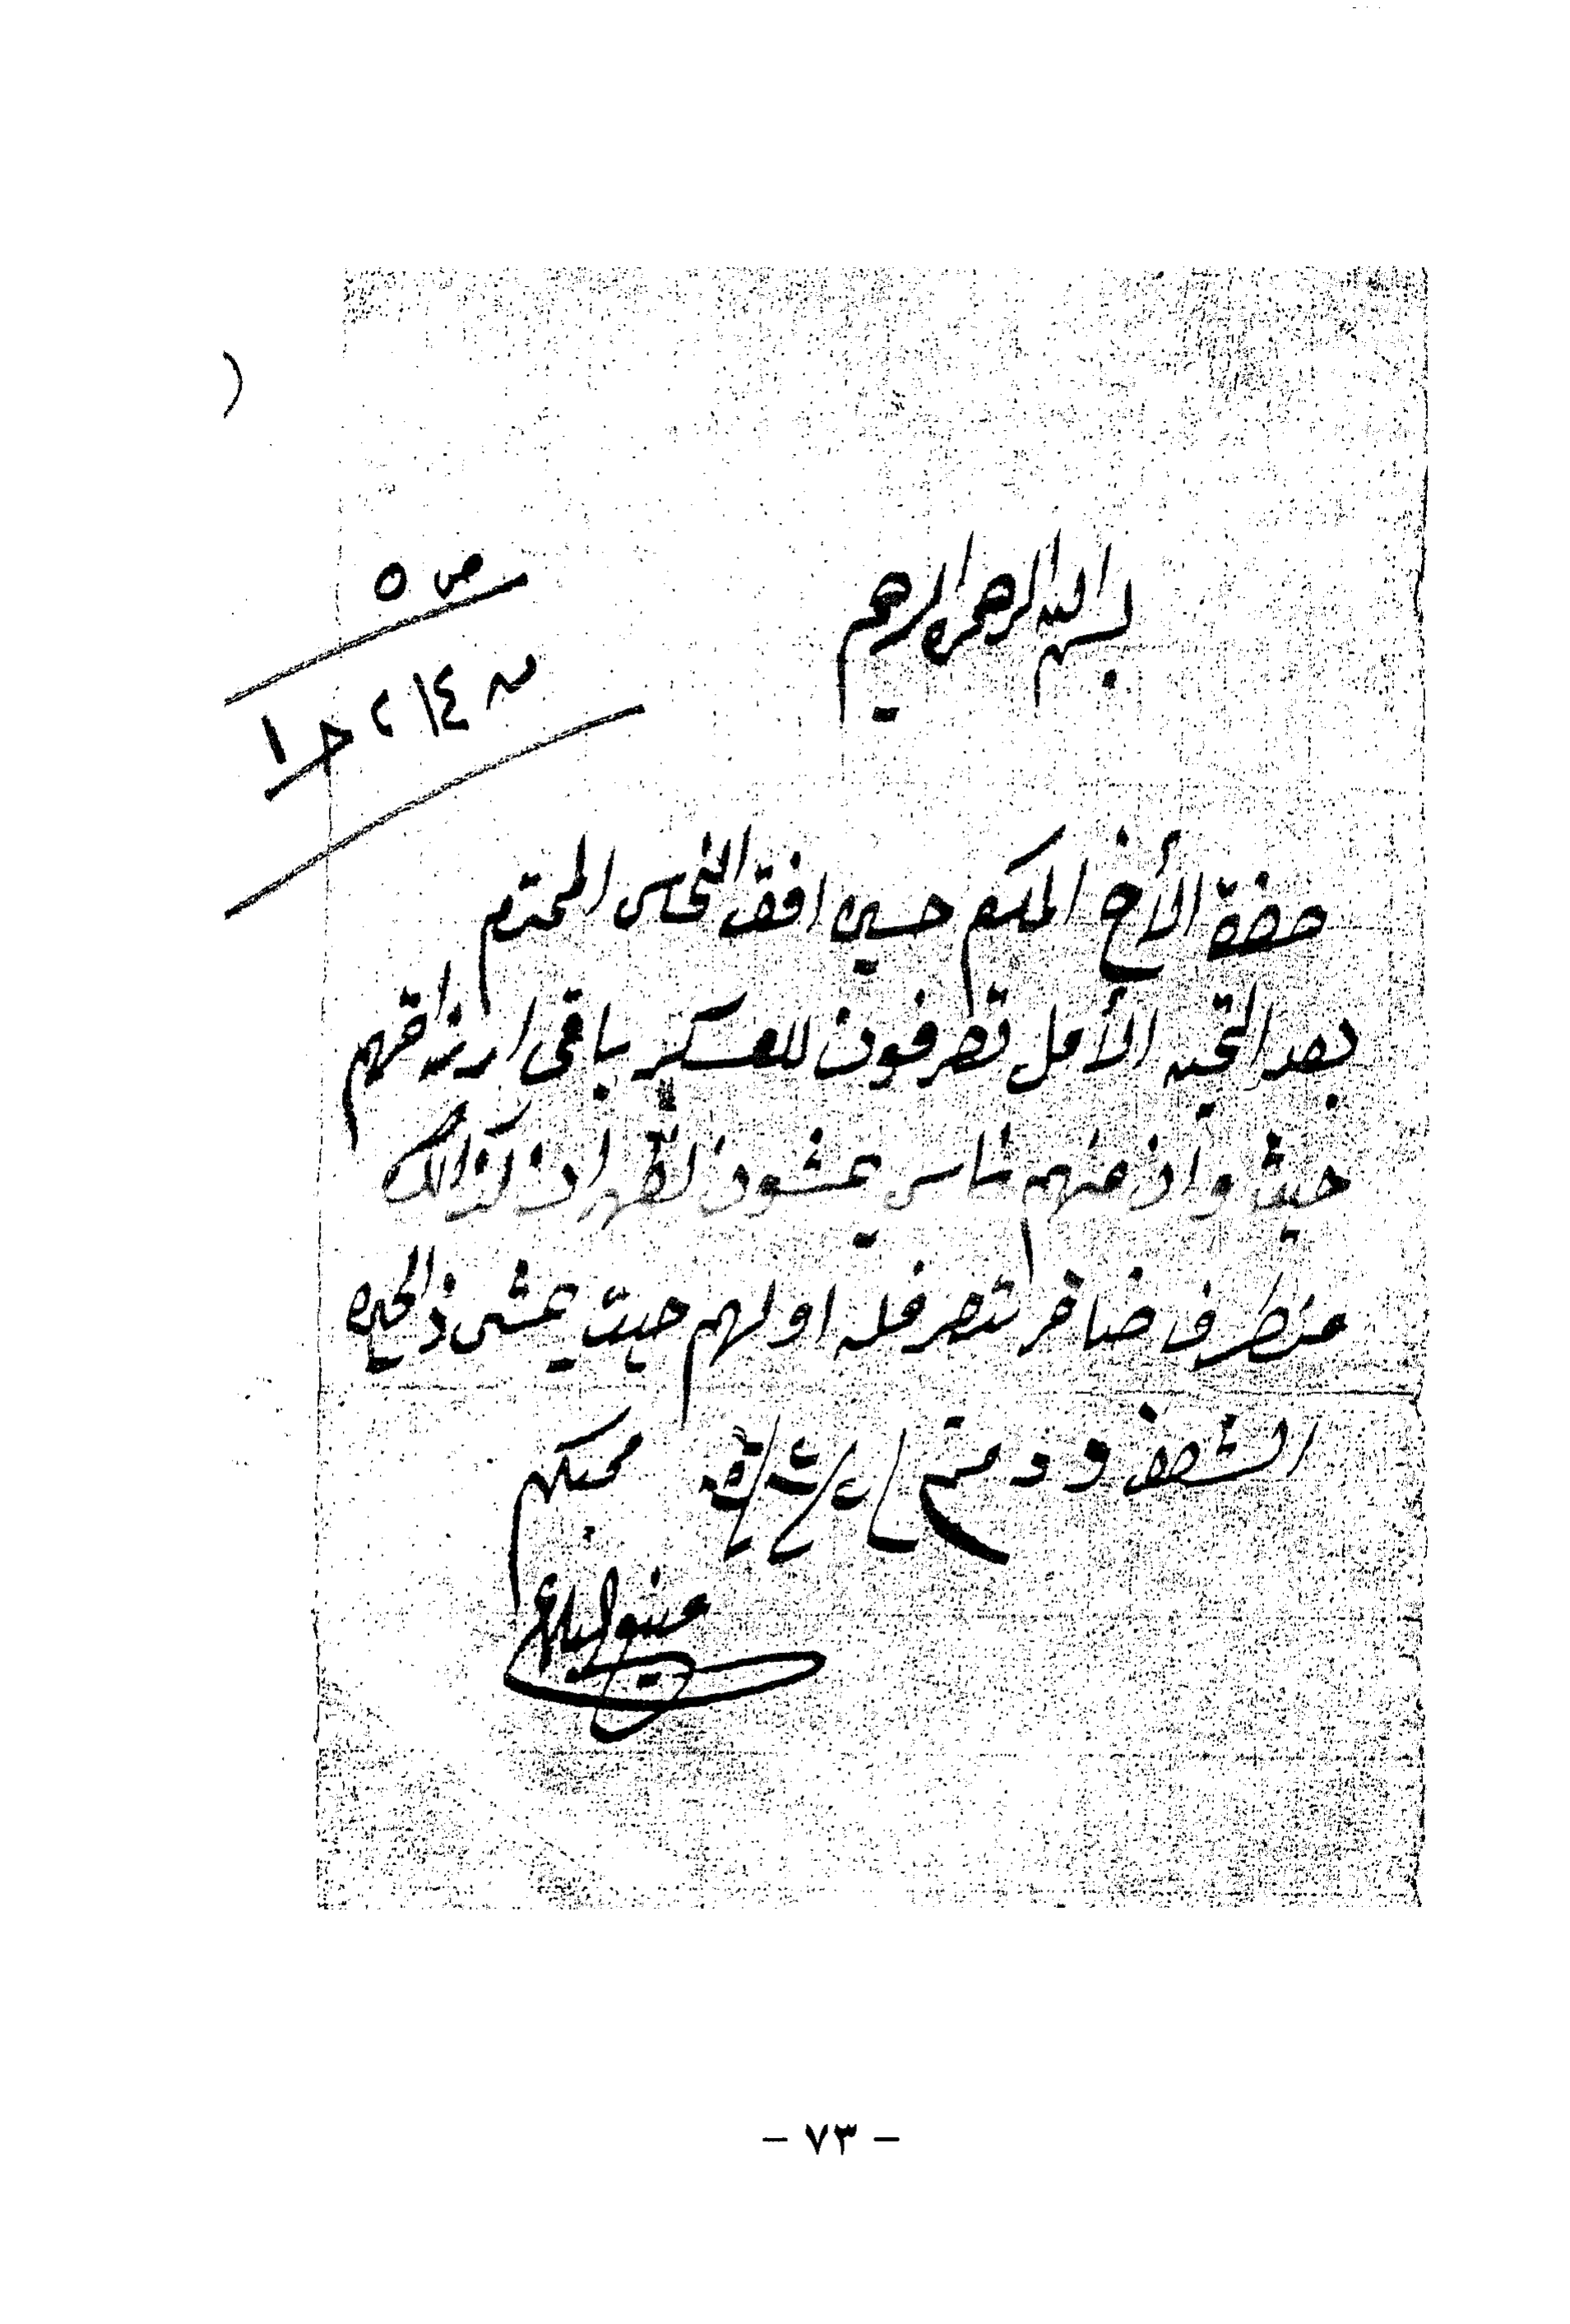 ص ٥
س ٢١٤ ج ١
بسم الله الرحمن الرحيم
حضرة الأخ المكرم حسين افقـ النحاس المحترم
بعد التحيه الأمل تصرفون للعسكر باقي ارزاقهم
حيث وان منهم ناس يمشون لظهران كذالك
منطرف ضافر تصرفله اولهم حيث يمشي ذالحين
ودمتم محبكم
- ٧٣ -